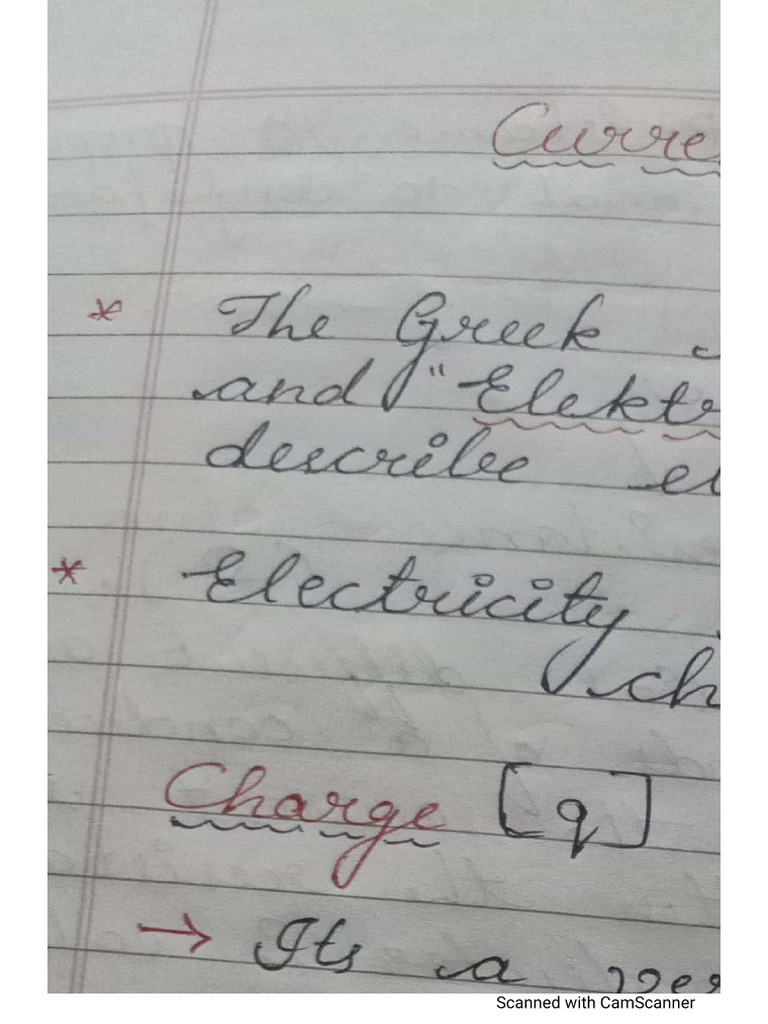 Curre
* The Greek
and "Elekt
describe el
* Electricity
ch
Charge [q]
→ Its a
Scanned with CamScanner